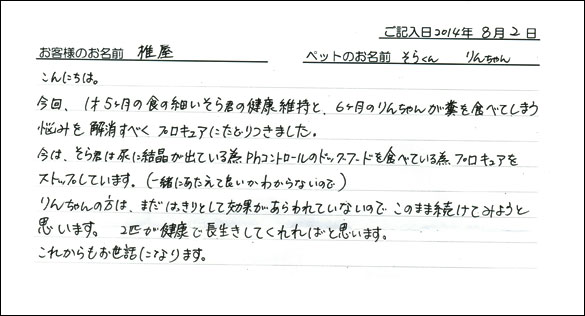 ご記入日2014年 8月 2日
お客様のお名前 椎屋 ペットのお名前 そらくん りんちゃん
こんにちは。
今回、1才5ヶ月の食の細いそら君の健康維持と、6ヶ月のりんちゃんが糞を食べてしまう
悩みを解消すべく プロキュアにたどりつきました。
今は、そら君は尿に結晶が出ている為 Phコントロールのドッグフードを食べている為 プロキュアを
ストップしています。(一緒にあたえて良いかわからないので)
りんちゃんの方は、まだはっきりとして効果があらわれていないので このまま続けてみようと
思います。 2匹が健康で長生きしてくれればと思います。
これからもお世話になります。